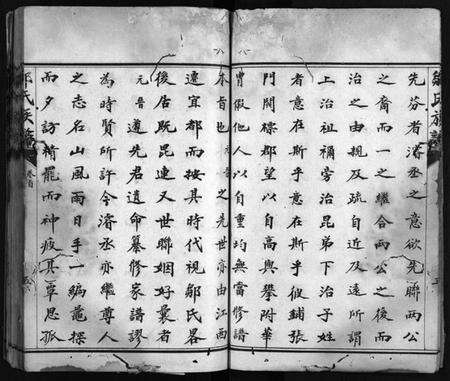 先芬者濬丞之意欲先聯兩公
之裔而一之繼合兩公之後而
治之由親及疏自近及遠所謂
上治祖禰旁治昆弟下治子姓
者意在斯乎意在斯乎彼鋪張
門閥標郡望以自高與攀附華
曹假他人以自重均無富修譜
本旨也 之先世亦由江西
遷宜都而按其時代視鄒氏畧
後居既毘連又世聯姻好曩者
元善遵先君遺命纂修家譜謬
為時賢所許今濬丞亦繼尊人
之志名山風雨日手一編蒐探
而夕訪精罷而神疲其覃思孤
鄒氏族譜
卷首